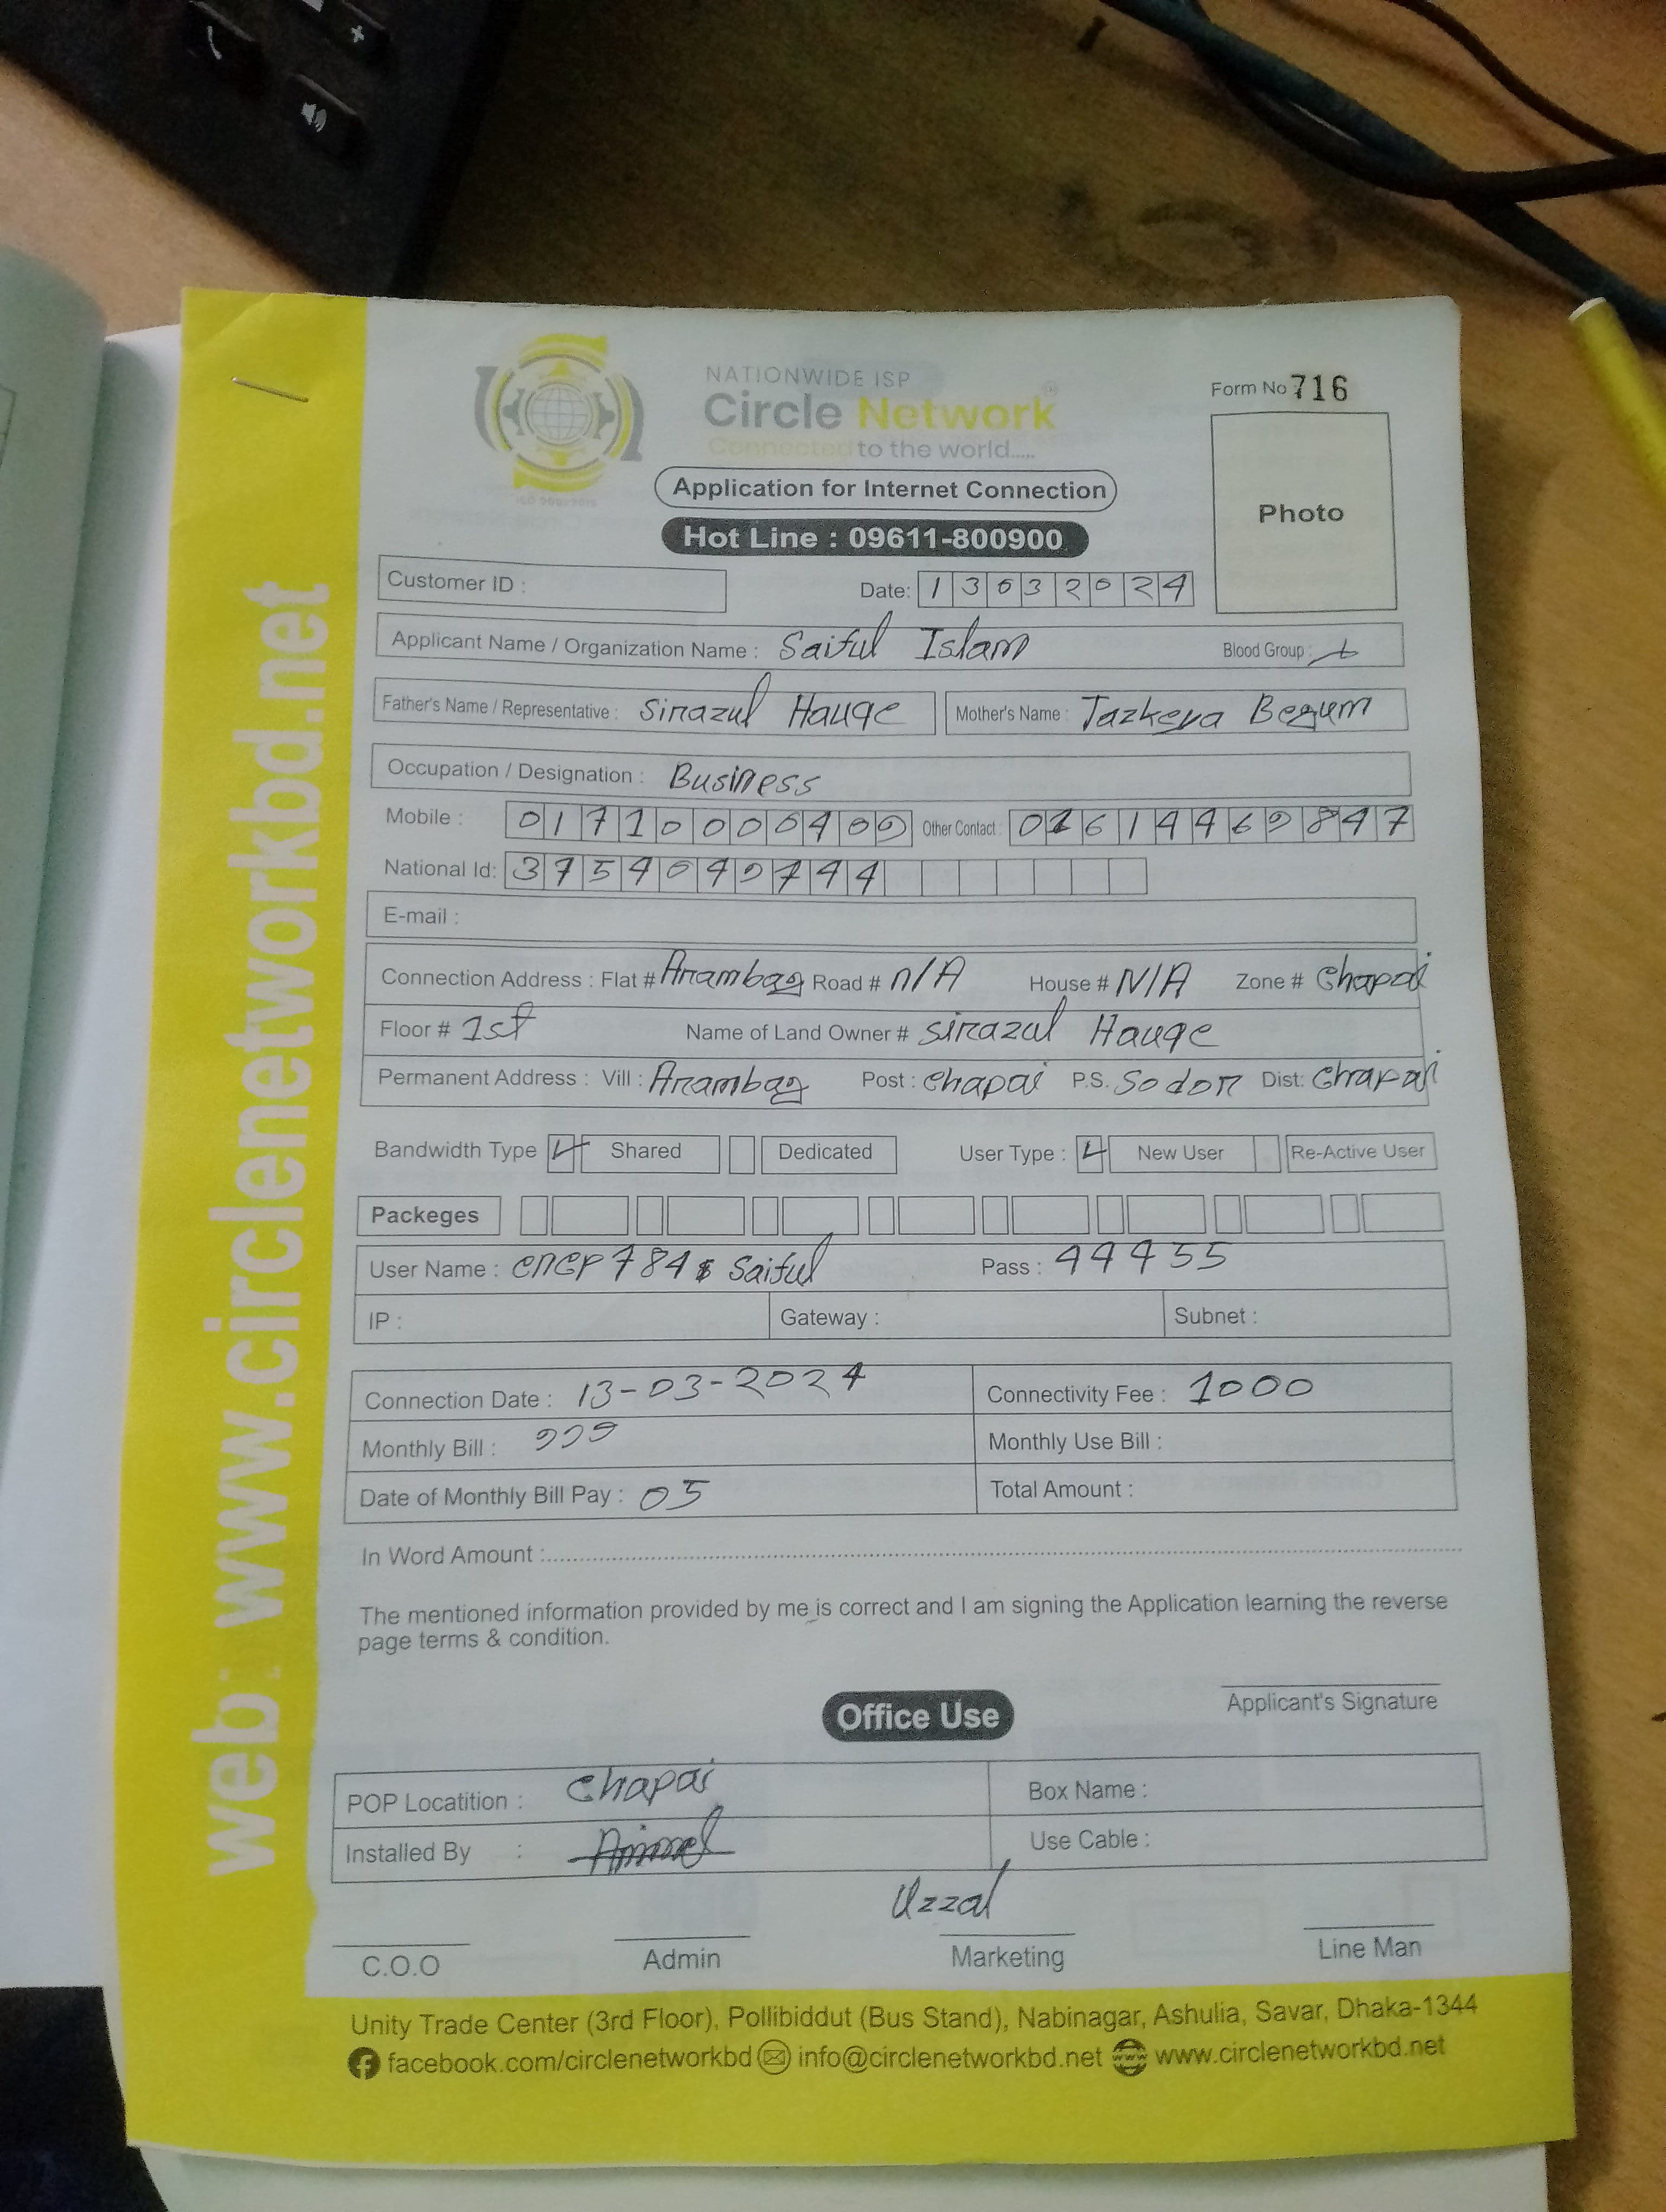 NATIONWIDE ISP
Circle Network
Connected to the world.....
Form No 716
Application for Internet Connection
Hot Line : 09611-800900
Photo
Customer ID : Date: 13032024
Applicant Name / Organization Name : Saiful Islam Blood Group :
Father's Name / Representative : Sirazul Hauqe Mother's Name : Tazkeya Begum
Occupation / Designation : Business
Mobile : Other Contact :
National Id: 3754049744
E-mail :
Connection Address : Flat # Arambag Road # n/A House # N/A Zone # Chapai
Floor # 1st Name of Land Owner # Sirazul Hauqe
Permanent Address : Vill : Arambag Post : Chapai P.S. Sodor Dist: Chapai
Bandwidth Type Shared Dedicated User Type : New User Re-Active User
Packeges
User Name : Saiful Pass : 44455
IP : Gateway : Subnet :
Connection Date : 13-03-2024 Connectivity Fee : 1000
Monthly Bill : 999 Monthly Use Bill :
Date of Monthly Bill Pay : 05 Total Amount :
In Word Amount :
The mentioned information provided by me is correct and I am signing the Application learning the reverse
page terms & condition.
Applicant's Signature
Office Use
POP Locatition : Chapai Box Name :
Installed By : Use Cable :
Uzzal
C.O.O Admin Marketing Line Man
Unity Trade Center (3rd Floor), Pollibiddut (Bus Stand), Nabinagar, Ashulia, Savar, Dhaka-1344
facebook.com/circlenetworkbd info@circlenetworkbd.net www.circlenetworkbd.net
web: www.circlenetworkbd.net